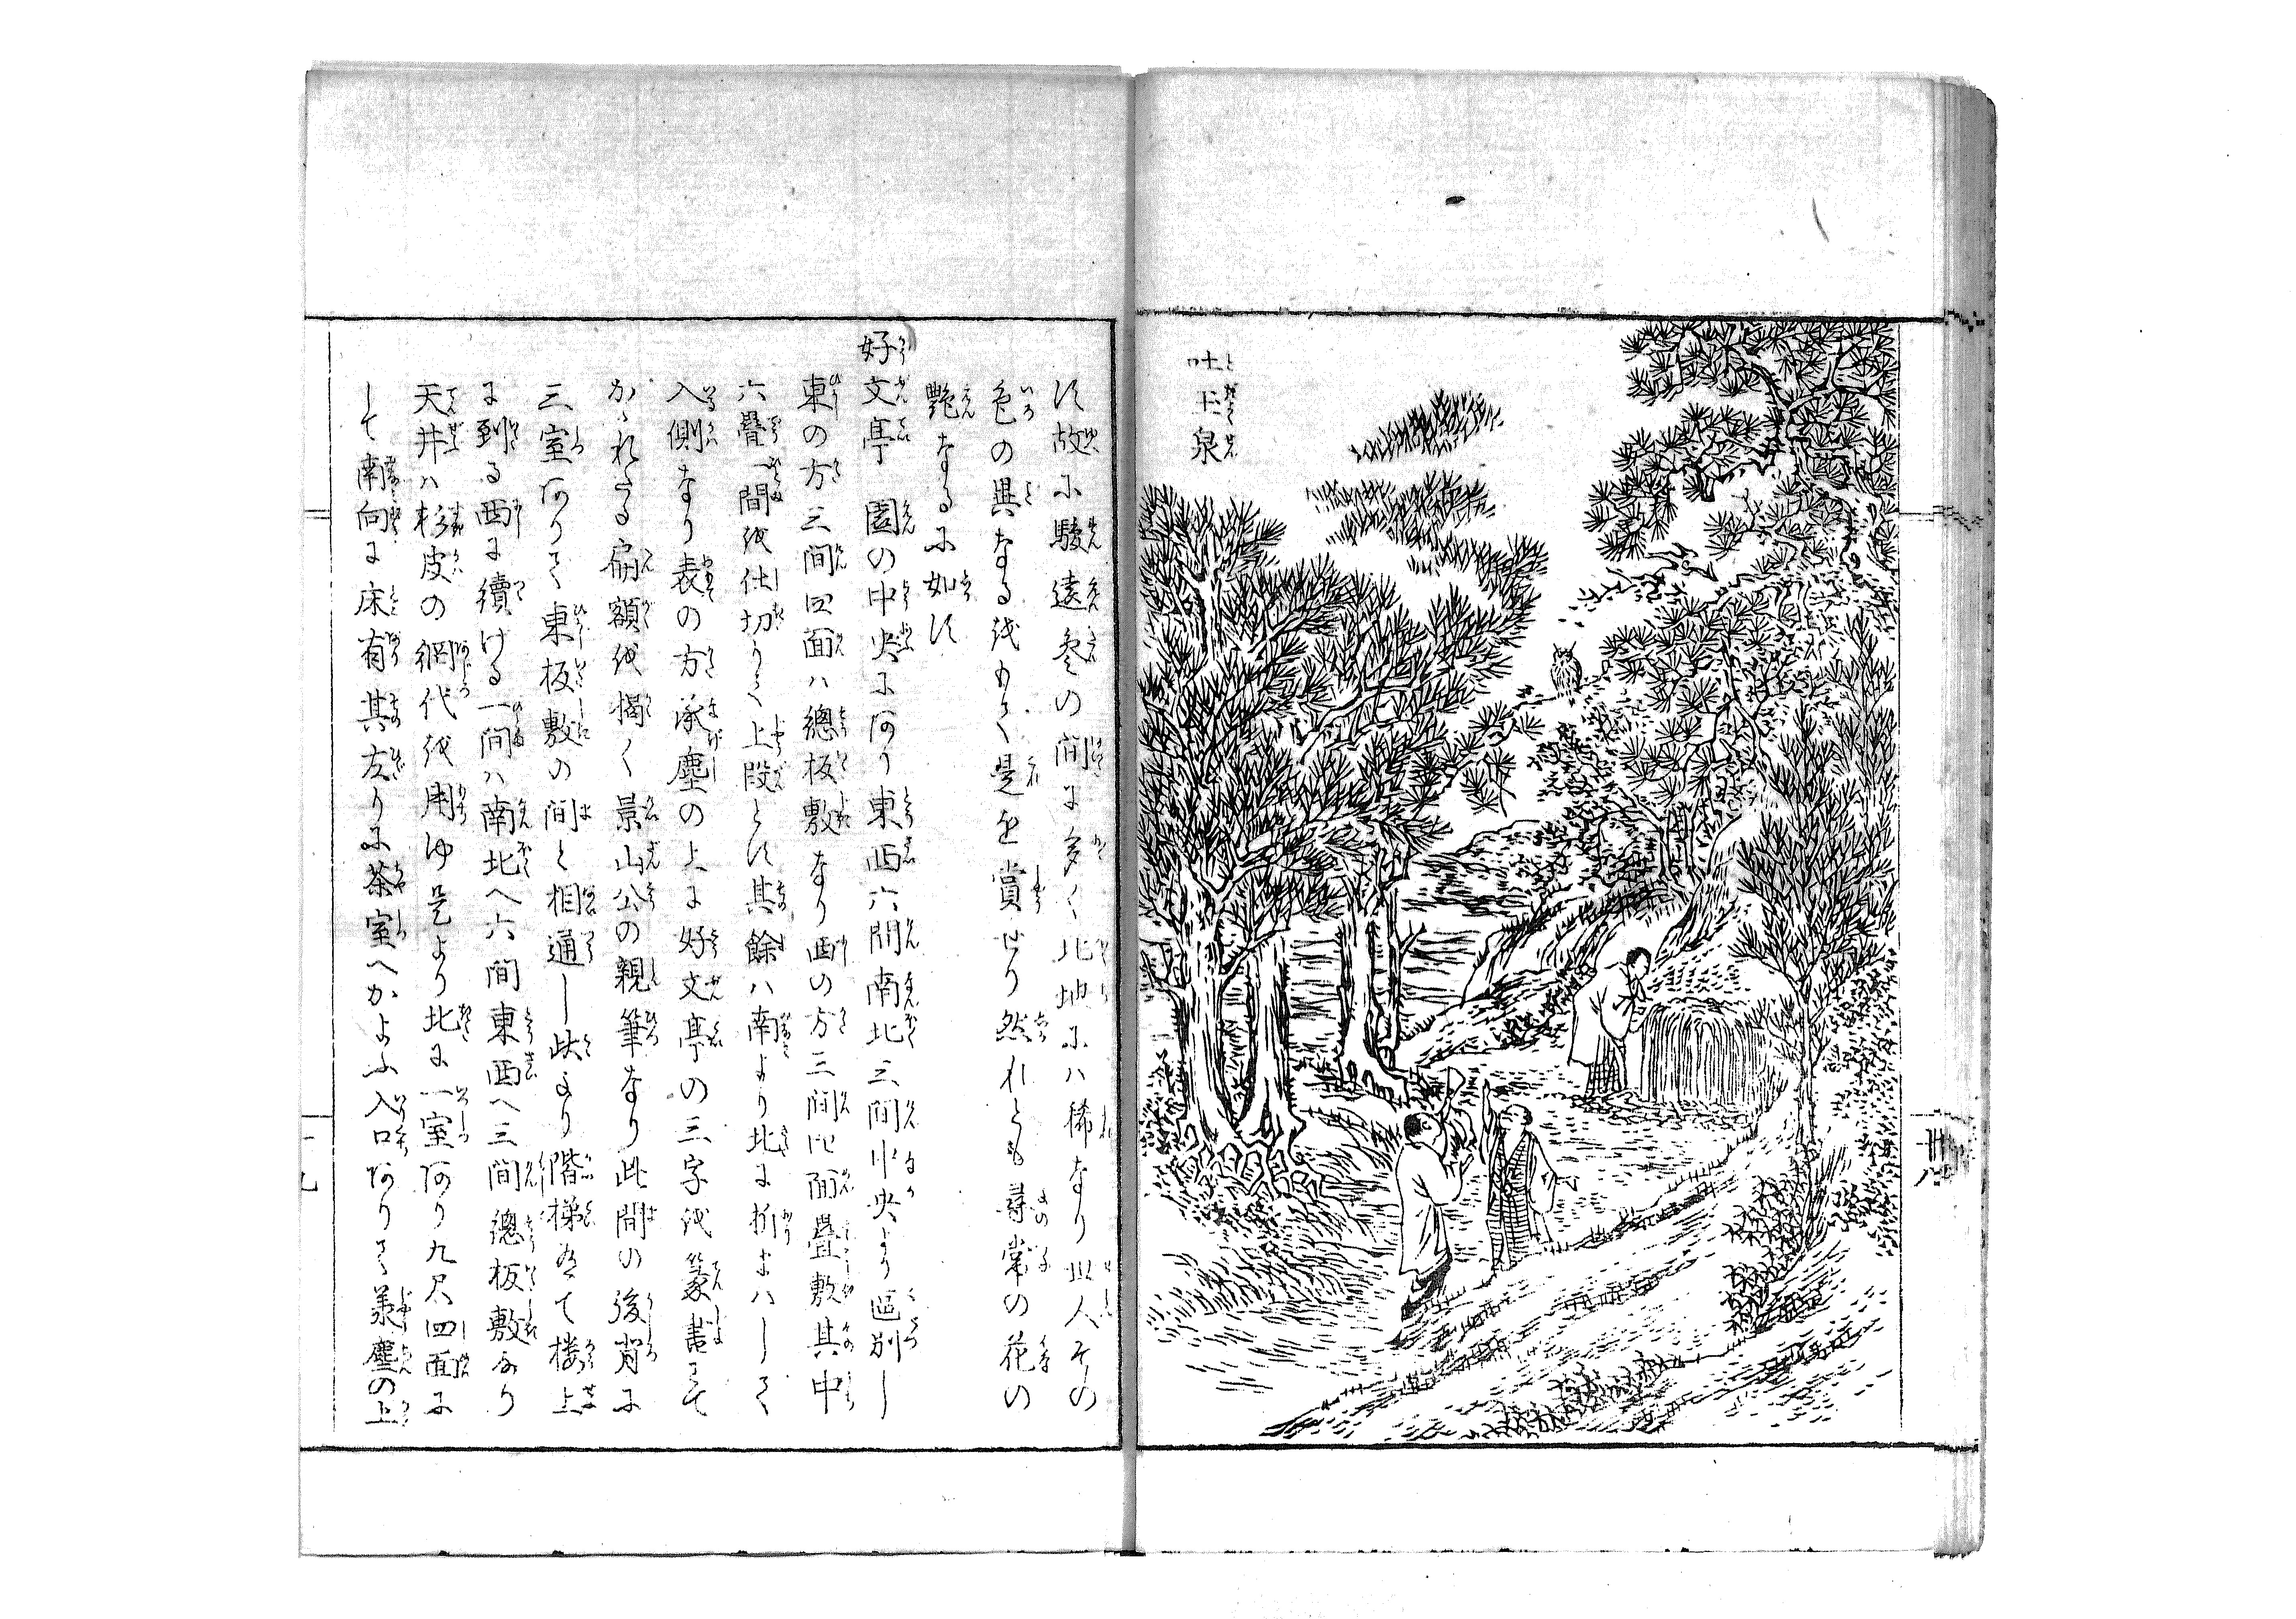 吐玉泉
廿八
す故に駿遠参の間に多く北地にハ稀なり世人その
色の異なるをもて是を賞せり然れとも尋常の花の
艶なるに如す
好文亭 園の中央にあり東西六間南北三間中央より区別し
東の方三間四面ハ總板敷なり西の方三間四面畳敷其中
六疊一間を仕切りて上段とす其餘ハ南より北に折まハして
入側なり表の方承塵の上に好文亭の三字を篆書にて
かゝれたる扁額を掲く景山公の親筆なり此間の後背に
三室ありて東板敷の間と相通し此より階梯有て楼上
に到る西に續ける一間ハ南北へ六間東西へ三間總板敷なり
天井ハ杉皮の網代を用ゆ是より北に一室あり九尺四面に
して南向に床有其左りに茶室へかよふ入口ありて承塵の上